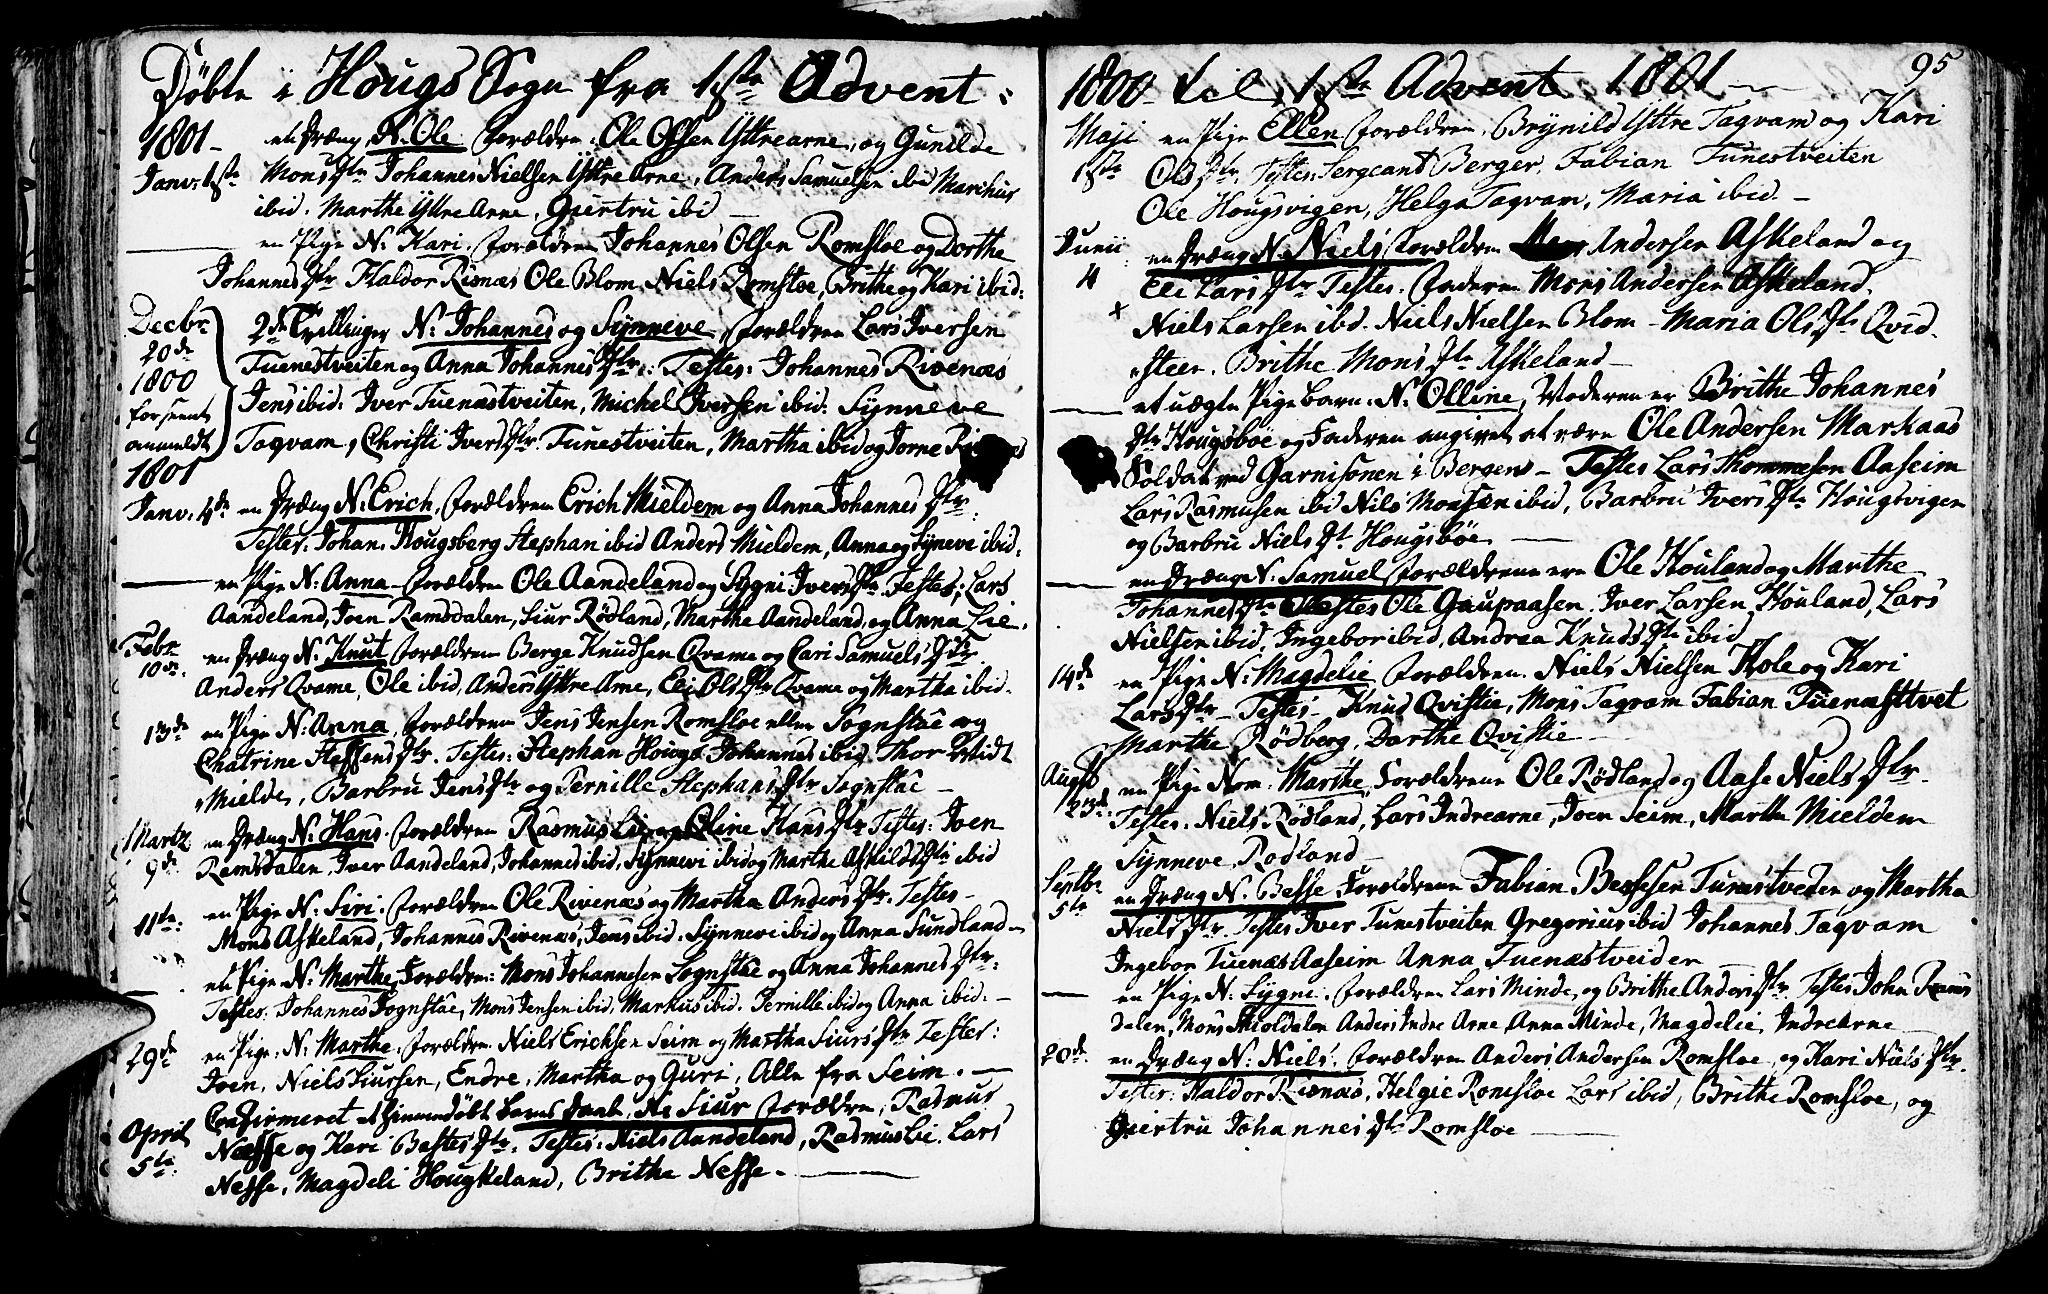 Døbte i Hougs Sogn fra 1ste Advent
1801 – en Dræng N. Ole Forældre: Ole Olsen Yttrearne, og Gunilde
Janv: 1ste Mons Dtr Johannes Nielsen Yttre Arne, Anders Samuelsen ibid Marchus
ibid. Marthe Yttre Arne, Giertru ibi –
en Pige N: Kari. Forældre Johannes Olsen Romsloe og Dorthe
Johannes Dtr Haldor Risnæs Ole Blom Niels Romsloe, Brithe og Kari ibid:
Decbr 20de 1800 forsent anmeldt
2de Tvillinger N: Johannes og Synneve, Forældre Lars Iversen
Tuenestveiten og Anna Johannes Dtr: Testes: Johannes Rivenæs
Jens ibid: Iver Tuenæstveiten, Michel Iversen ibid: Synneve
Taqvam, Christi Ivers Dtr Tunestveiten, Martha ibid og Jorne
1801
Janv. 4de en Dræng N: Erich, Forældre Erich Mieldem og Anna Johannes Dtr
Testes: Johan: Hougsberg Stephan ibid Anders Mieldem, Anna og Syneve ibid.
en Pige N: Anna – Forældre Ole Aandeland og Sygni Ivers Dtr Testes; Lars
Aandeland, Joen Ramsdalen, Siur Rødland, Marthe Aandeland, og Anna Lie.
Febr 10de en Dræng N. Knut Forældre Berge Knudsen Qvame og Cari Samuels Dtr
Anders Qvame, Ole ibid, Anders Yttre Arne, Eli Ols Dtr Qvame og Martha ibid.
13de en Pige N: Anna, Forældre Jens Jensen Romsloe eller Sognstue og
Chatrine Steffens Dtr. Testes: Stephan Hougs Johannes ibid Thor Vidt
Mielde, Barbru Jens Dtr og Pernille Stephans Dtr Sognstue –
Martz 9de en Dræng N: Hans. Forældre Rasmus Lie og Oline Hans Dtr Testes: Joen
Ramsdalen, Iver Aandeland, Johannes ibid, Synnevi ibid og Marthe Askilds Dtr ibid
11te: en Pige N: Siri. Forældre Ole Rivenæs og Martha Anders Dtr. Testes –
Mons Askeland, Johannes Rivenæs, Jens ibid. Synneve ibid og Anna Sundland –
en Pige N: Marthe, Forældre: Mons Johannesen Sognstue og Anna Johannes Dtr:
Testes: Johannes Sognstue, Mons Jensen ibid, Markus ibid. Pernille ibid og Anna ibid. –
29de en Pige: N: Marthe. Forældre Niels Erichsen Seim og Martha Siurs Dtr Testes:
Joen, Niels Siursen, Endre, Martha og Guri, Alle fra Seim. –
April 5te Confirmeret et hiemmedøbt Barns Daab, N: Siur Forældre, Rasmus
Næsse og Kari Bastes Dtr: Testes: Niels Aandeland, Rasmus Lie. Lars
Nesse, Magdeli Hougkeland, Brithe Nesse. –
95
1800 – til 1ste Advent 1801 –
Maji 1ste en Pige Ellen Forældre Brynild Yttre Taqvam og Kari
Ols Dtr, Testes Sergeant Berger, Fabian Tunestveiten
Ole Hougsvigen, Helga Taqvam, Maria ibid. –
Junii 4 en Dræng N. Niels Forældre Andersen Askeland og
Eli Lars Dtr Testes. Faderen Mons Andersen Askeland.
x Niels Larsen ibd. Niels Nielsen Blom – Maria Ols Dtr Qvid-
steen. Brithe Mons Dtr Askeland –
et uægte Pige Barn: N: Olline, Moderen er Brithe Johannes
Dtr Hougsboe og Faderen angivet at være Ole Andersen Markaas
Soldat ved Garnisonen i Bergens – Testes Lars Thommesen Aaseim
Lars Rasmusen ibi Nils Monsen ibid, Barbru Ivers Dtr Hougsvigen
og Barbru Niels Dt. Hougsbøe –
en Dræng N. Samuel Forældrene ere Ole Houland og Marthe
Johannes Dtr Testes Ole Gaupaasen. Iver Larsen, Houland, Lars
Nielsen ibid, Ingebor ibid, Andrea Knuds Dtr ibid
14de en Pige N: Magdelie Forældre. Niels Nielsen Hole og Kari
Lars Dtr – Testes – Knud Qvistie, Mons Taqvam Fabian Tuenæstvet
Marthe Rødberg, Darthe Qvistie –
Augst 23de en Pige Nom: Marthe, Forældrene Ole Rødland og Aase Niels Dtr.
Testes. Niels Rødland, Lars Indrearne, Joen Seim, Martha Mieldem
Synneve Rødland –
Septbr 5te en Dræng N. Besse Forældrene Fabian Bessesen Tunestveden og Martha
Niels Dtr. Testes Iver Tunestveiten Gregorius ibid Johannes Taqvam
Ingebor Tuenæs Aaseim Anna Tuenæstveiden –
en Pige N: Sygni. Forældre Lars Minde, og Brithe Anders Dtr. Testes John Rams
dalen, Mons Mioldalen Anders Indre Arne Anna Minde, Magdelie, Indrearne
20de: en Dræng N: Niels. Forældre Anders Andersen Romsloe, og Kari Niels Dtr.
Testes: Haldor Risnæs, Helgie Romsloe Lars ibid, Brithe Romsloe, og
Giertru Johannes Dtr Romsloe –